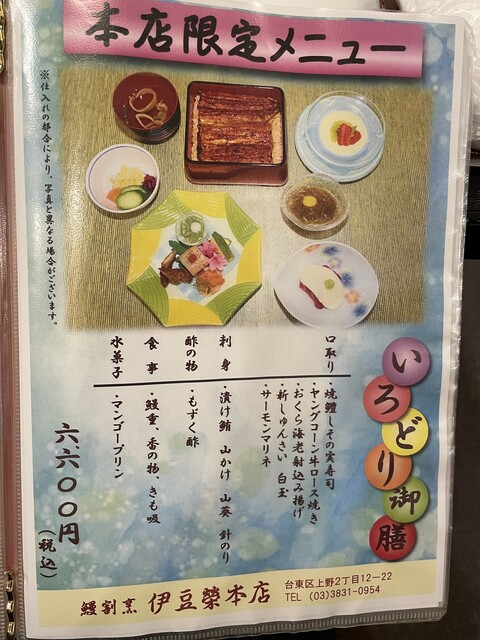 本店限定メニュー
※仕入れの都合により、写真と異なる場合がございます。
いろどり御膳
口取り
・焼鱧しその実寿司
・ヤングコーン牛ロース焼き
・おくら海老射込み揚げ
・新じゅんさい 白玉
・サーモンマリネ
刺身
・漬け鮪 山かけ 山葵 針のり
酢の物
・もずく酢
食事
・鰻重、香の物、きも吸
水菓子
・マンゴープリン
六、六〇〇円
(税込)
鰻割烹 伊豆榮本店
台東区上野2丁目12−22
TEL (03)3831-0954